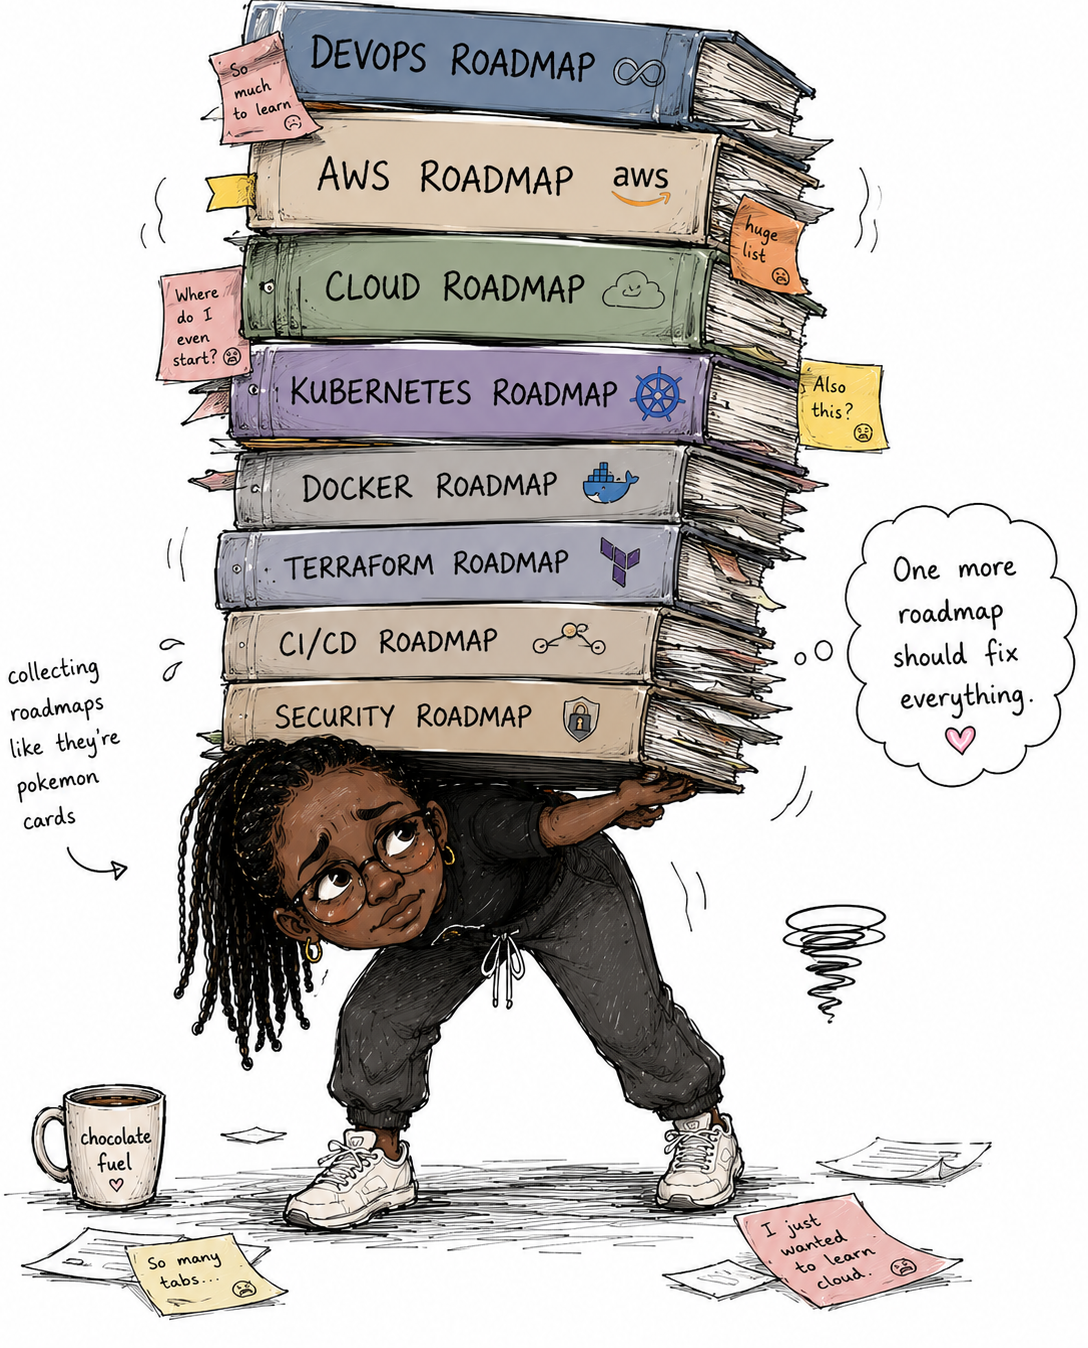 DEVOPS ROADMAP
So
much
to learn
AWS ROADMAP aws
huge
list
CLOUD ROADMAP
Where
do I
even
start?
KUBERNETES ROADMAP
Also
this?
DOCKER ROADMAP
TERRAFORM ROADMAP
CI/CD ROADMAP
SECURITY ROADMAP
One more
roadmap
should fix
everything.
collecting
roadmaps
like they're
pokemon
cards
chocolate
fuel
So many
tabs...
I just
wanted
to learn
cloud.